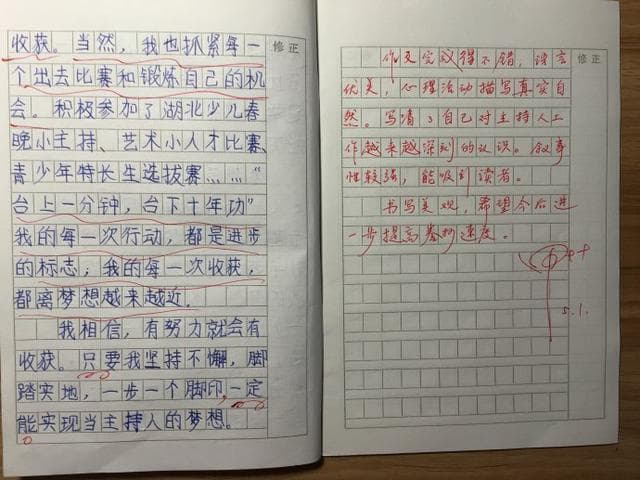 修正
收获。当然，我也抓紧每一
个出去比赛和锻炼自己的机
会。积极参加了湖北少儿春
晚小主持、艺术小人才比赛、
青少年特长生选拔赛……“
台上一分钟，台下十年功”
我的每一次行动，都是进步
的标志；我的每一次收获，
都离梦想越来越近。
我相信，有努力就会有
收获。只要我坚持不懈，脚
踏实地，一步一个脚印，一定
能实现当主持人的梦想。
修正
作文完成得不错，语言
优美，心理活动描写真实自
然。写清了自己对主持人工
作越来越深刻的认识。叙事
性较强，能吸引读者。
书写美观，希望今后进
一步提高卷面速度。
5.1.